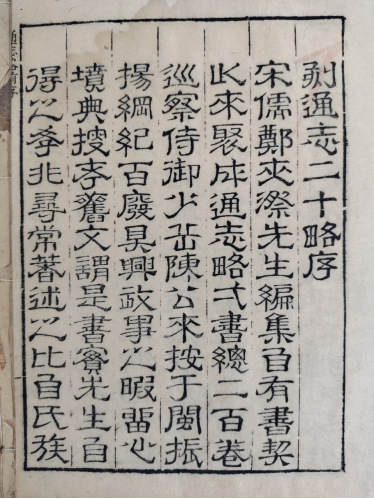 刻通志二十略序
宋儒鄭夾漈先生編集自有書契
以來聚成通志略弌書總二百卷
巡察侍御少岳陳公來按于閩振
揚綱紀百廢具興政事之暇留心
墳典搜考舊文謂是書實先生自
得之斈非尋常著述之比自氏族